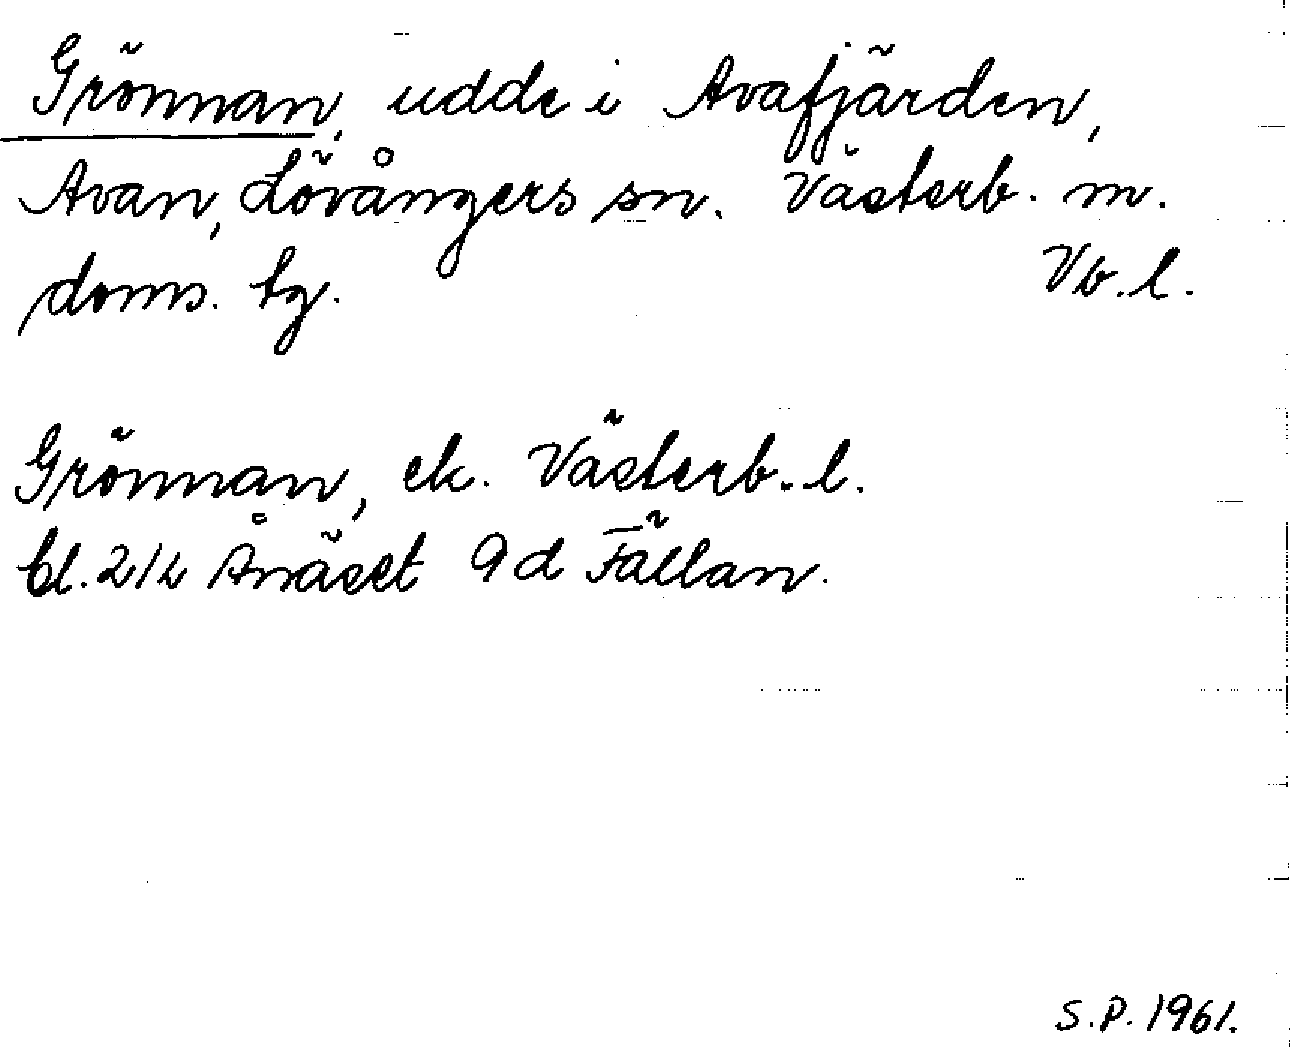 Grönnan, udde i Avafjärden,
Avan, Lövångers sn. Västerb. m.
doms. tg. Vb. l.
Grönnan, ek. Västerb. l.
bl. 214 Ånäset 9d Fällan.
S.P. 1961.